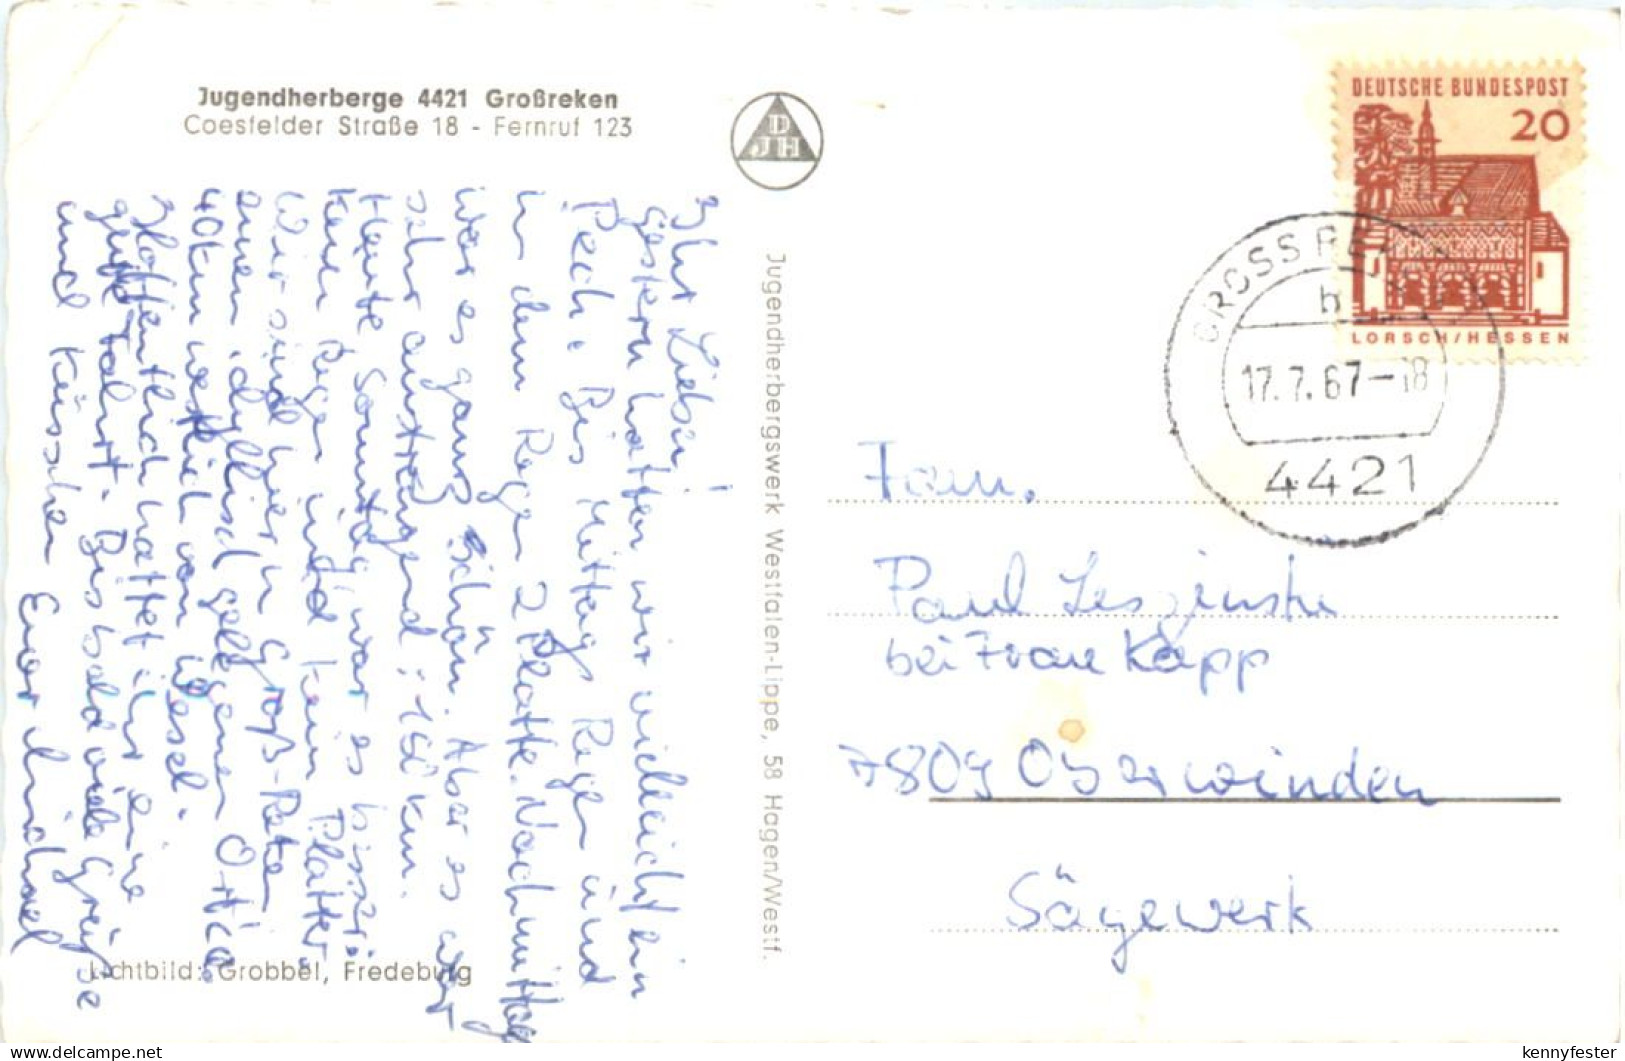 Jugendherberge 4421 Großreken
Coesfelder Straße 18 - Fernruf 123
DJH
Ihr Lieben!
gestern hatten wir vielleicht ein
Pech. Bis Mittags Regen und
in dem Regen 2 Platte. Nachmittag
war es ganz schön. Aber es war
sehr anstrengend: 160 km.
Heute Sonntag war es bisher:
kein Regen und kein Platter.
Wir sind hier in Groß-Reken
einen idyllisch gelegenen Ort ca.
40km westlich von Wesel.
Hoffentlich hattet ihr eine
gute Fahrt. Bis bald viele Grüße
und Küsschen Euer Michael
Lichtbild: Grobbel, Fredeburg
Jugendherbergswerk Westfalen-Lippe, 58 Hagen/Westf.
DEUTSCHE BUNDESPOST
20
LORSCH/HESSEN
GROSSRE
b
17.7.67-18
4421
Fam.
Paul Leszinski
bei Frau Kapp
7809 Oberwinden
Sägewerk
kennyfester